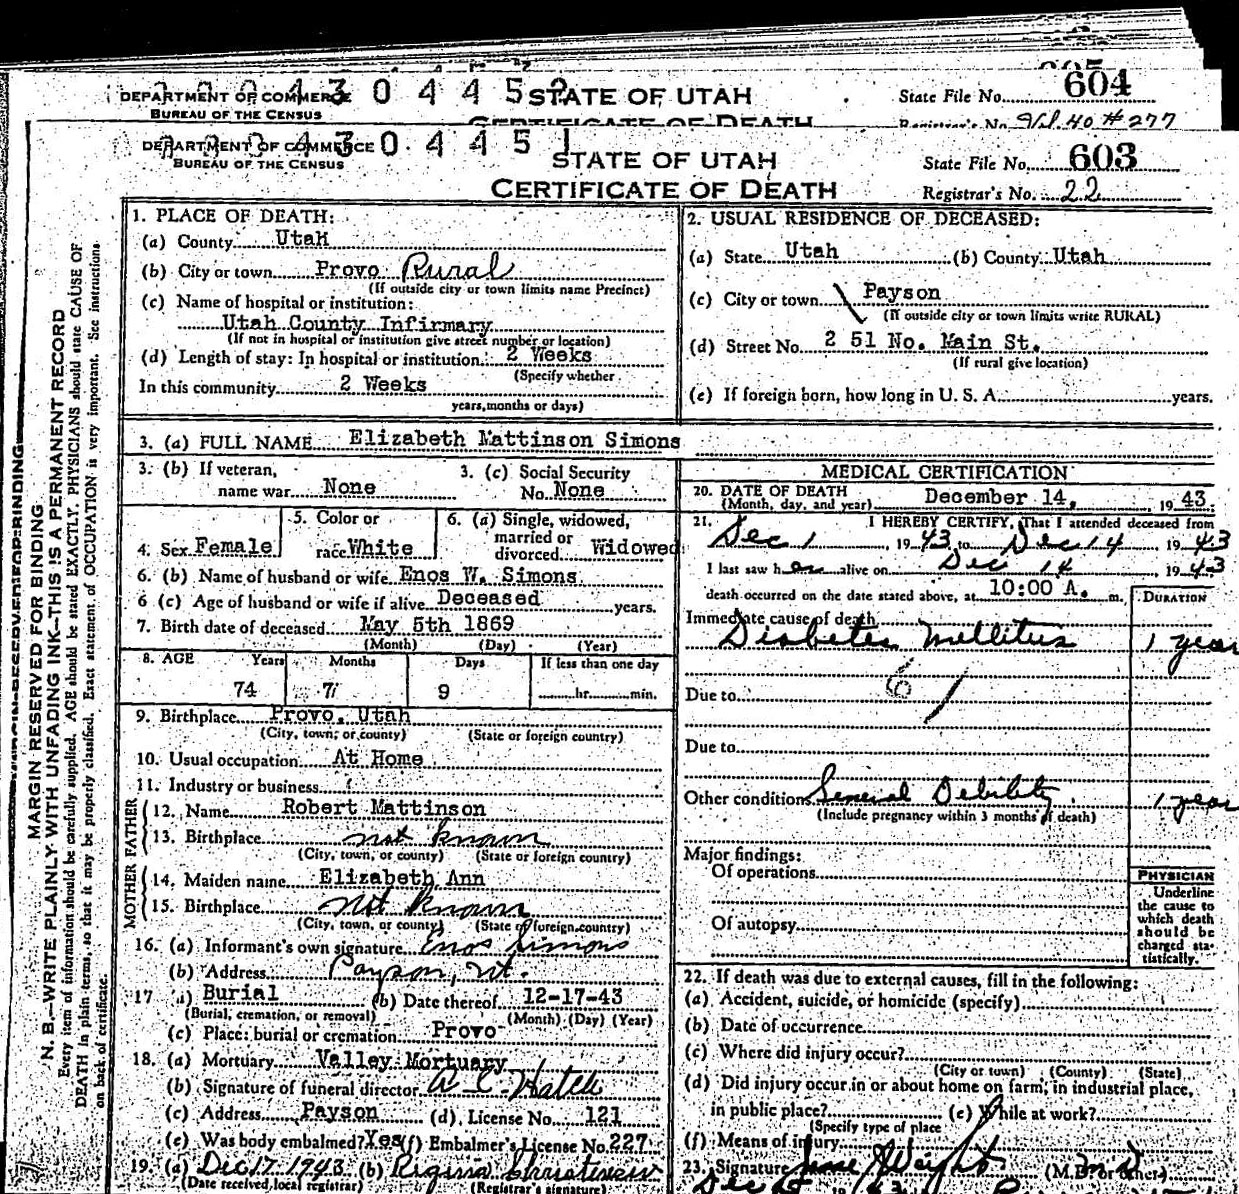 605
DEPARTMENT OF COMMERCE
BUREAU OF THE CENSUS
STATE OF UTAH
CERTIFICATE OF DEATH
State File No. 604
Registrar's No. Vol. 40 # 277
DEPARTMENT OF COMMERCE
BUREAU OF THE CENSUS
STATE OF UTAH
CERTIFICATE OF DEATH
State File No. 603
Registrar's No. 22
MARGIN RESERVED FOR BINDING
N. B.—WRITE PLAINLY WITH UNFADING INK—THIS IS A PERMANENT RECORD
Every item of information should be carefully supplied. AGE should be stated EXACTLY. PHYSICIANS should state CAUSE OF
DEATH in plain terms, so that it may be properly classified. Exact statement of OCCUPATION is very important. See instructions
on back of certificate.
1. PLACE OF DEATH:
(a) County Utah
(b) City or town Provo Rural
(If outside city or town limits name Precinct)
(c) Name of hospital or institution:
Utah County Infirmary
(If not in hospital or institution give street number or location)
(d) Length of stay: In hospital or institution: 2 Weeks
(Specify whether
In this community 2 Weeks
years, months or days)
2. USUAL RESIDENCE OF DECEASED:
(a) State Utah (b) County Utah
(c) City or town Payson
(If outside city or town limits write RURAL)
(d) Street No. 2 51 No. Main St.
(If rural give location)
(e) If foreign born, how long in U. S. A. years.
3. (a) FULL NAME Elizabeth Mattinson Simons
3. (b) If veteran,
name war None
3. (c) Social Security
No. None
4. Sex Female
5. Color or
race White
6. (a) Single, widowed,
married or
divorced Widowed
6. (b) Name of husband or wife Enos W. Simons
6 (c) Age of husband or wife if alive Deceased years.
7. Birth date of deceased May 5th 1869
(Month) (Day) (Year)
8. AGE Years Months Days If less than one day
74 7 9 hr. min.
9. Birthplace Provo, Utah
(City, town, or county) (State or foreign country)
10. Usual occupation At Home
11. Industry or business
FATHER
12. Name Robert Mattinson
13. Birthplace not known
(City, town, or county) (State or foreign country)
MOTHER
14. Maiden name Elizabeth Ann
15. Birthplace not known
(City, town, or county) (State or foreign country)
16. (a) Informant's own signature Enos Simons
(b) Address Payson, Ut.
17 Burial (b) Date thereof 12-17-43
(Burial, cremation, or removal) (Month) (Day) (Year)
(c) Place: burial or cremation Provo
18. (a) Mortuary Valley Mortuary
(b) Signature of funeral director A L Hatch
(c) Address Payson (d) License No. 121
(e) Was body embalmed? Yes (f) Embalmer's License No. 227
19. (a) Dec 17 1943 (b) Regina Christensen
(Date received local registrar) (Registrar's signature)
MEDICAL CERTIFICATION
20. DATE OF DEATH
(Month, day, and year) December 14, 19 43
21. I HEREBY CERTIFY, That I attended deceased from
Dec 1, 19 43 to Dec 14 19 43
I last saw her alive on Dec 14 19 43
death occurred on the date stated above, at 10:00 A. m.
DURATION
Immediate cause of death
Diabetes Mellitus 1 year
61
Due to
Due to
Other conditions General Debility 1 year
(Include pregnancy within 3 months of death)
Major findings:
Of operations
Of autopsy
PHYSICIAN
Underline
the cause to
which death
should be
charged sta-
tistically.
22. If death was due to external causes, fill in the following:
(a) Accident, suicide, or homicide (specify)
(b) Date of occurrence
(c) Where did injury occur?
(City or town) (County) (State)
(d) Did injury occur in or about home on farm, in industrial place,
in public place? (e) While at work?
(Specify type of place
(f) Means of injury
23. Signature (M.D. or other)